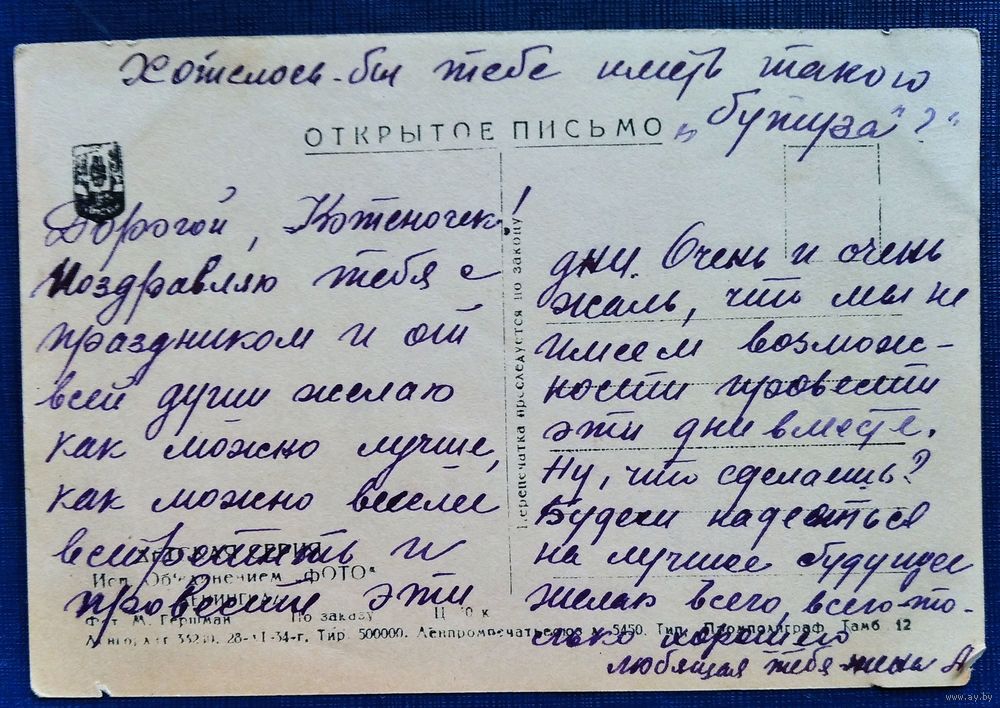 Хотелось-бы тебе иметь такого
„бутуза"?
ОТКРЫТОЕ ПИСЬМО
Дорогой, Котеночек!
Поздравляю тебя с
праздником и от
всей души желаю
как можно лучше,
как можно веселее
встретить и
провести эти
дни. Очень и очень
жаль, что мы не
имеем возмож-
ности провести
эти дни вместе.
Ну, что сделаешь?
Будем надеяться
на лучшее будущее
желаю всего, всего то-
лько хорошего
любящая тебя жена А.
Перепечатка преследуется по закону
СЕРИЯ
Исп. Объединением „ФОТО"
ЛЕНИНГРАД
Фот М. Гершман По заказу Ц к.
28-VI-34-г. Тир. 500000. Ленпромпечатьсоюз 5450. Тип. Промполиграф Тамб 12
www.ay.by